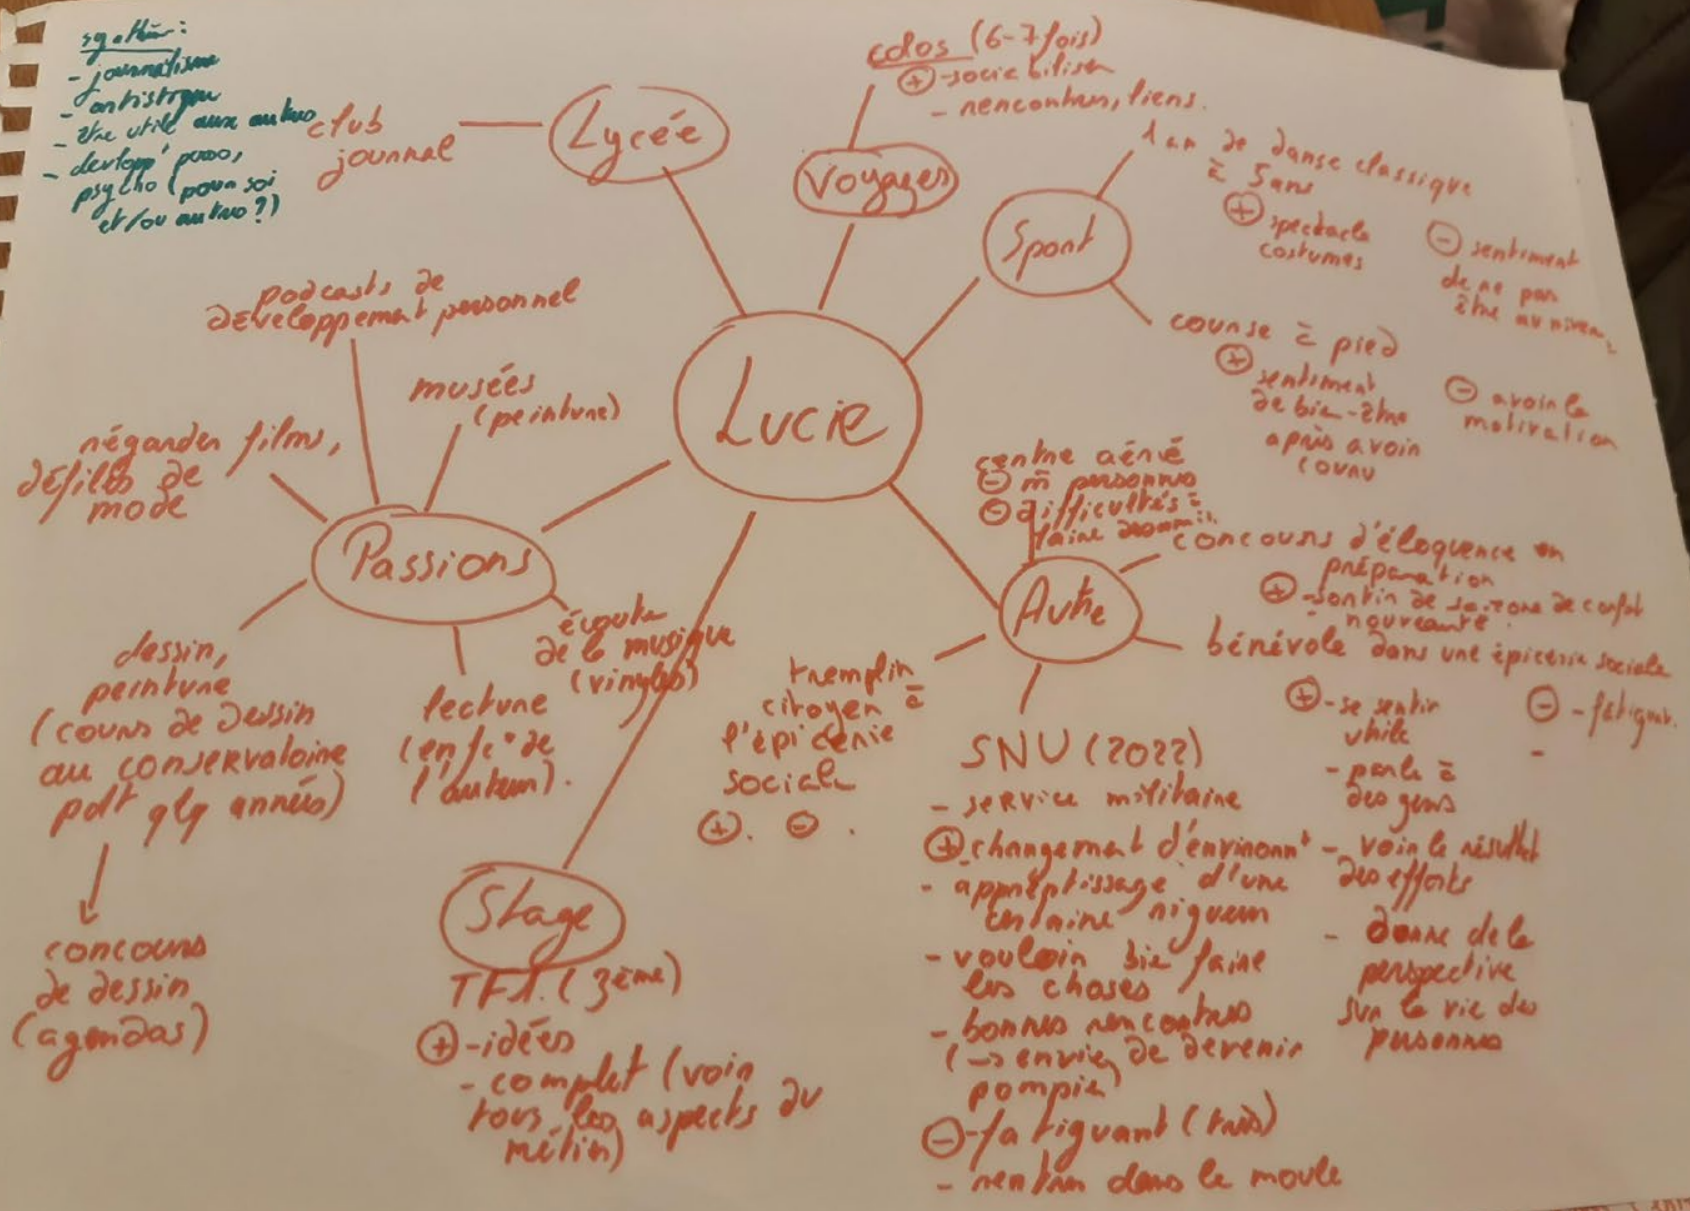 synthèse :
- journalisme
- artistique
- être utile aux autres
- devlopp' perso,
psycho (pour soi
et/ou autres ?)
club
journal
Lycée
colos (6-7 fois)
+ - sociabiliser
- rencontres, liens.
Voyages
Sport
1 an de danse classique
à 5 ans
+ spectacle
costumes
- sentiment
de ne pas
être au niveau
course à pied
+ sentiment
de bien-être
après avoir
couru
- avoir la
motivation
Lucie
podcasts de
développement personnel
musées
(peinture)
régarder films,
défilés de
mode
Passions
écoute
de la musique
(vinyles)
dessin,
peinture
(cours de dessin
au conservatoire
pdt qlq années)
concours
de dessin
(agendas)
lecture
(en fc° de
l'auteur).
Stage
TF1. (3ème)
+ - idées
- complet (voir
tous les aspects du
métier)
centre aéré
- m̄ personnes
- difficultés à
faire des amis
Autre
concours d'éloquence en
préparation
+ - sortir de sa zone de confort
- nouveauté.
bénévole dans une épicerie sociale
+ - se sentir
utile
- parle à
des gens
- voir le résultat
des efforts
- donne de la
perspective
sur la vie des
personnes
- - fatiguant.
-
tremplin
citoyen à
l'épicerie
sociale
+. -.
SNU (2022)
- service militaire
+ changement d'environnt
- apprentissage d'une
certaine rigueur
- vouloir bien faire
les choses
- bonnes rencontres
(-> envie de devenir
pompier)
- - fatiguant (très)
- rentrer dans le moule